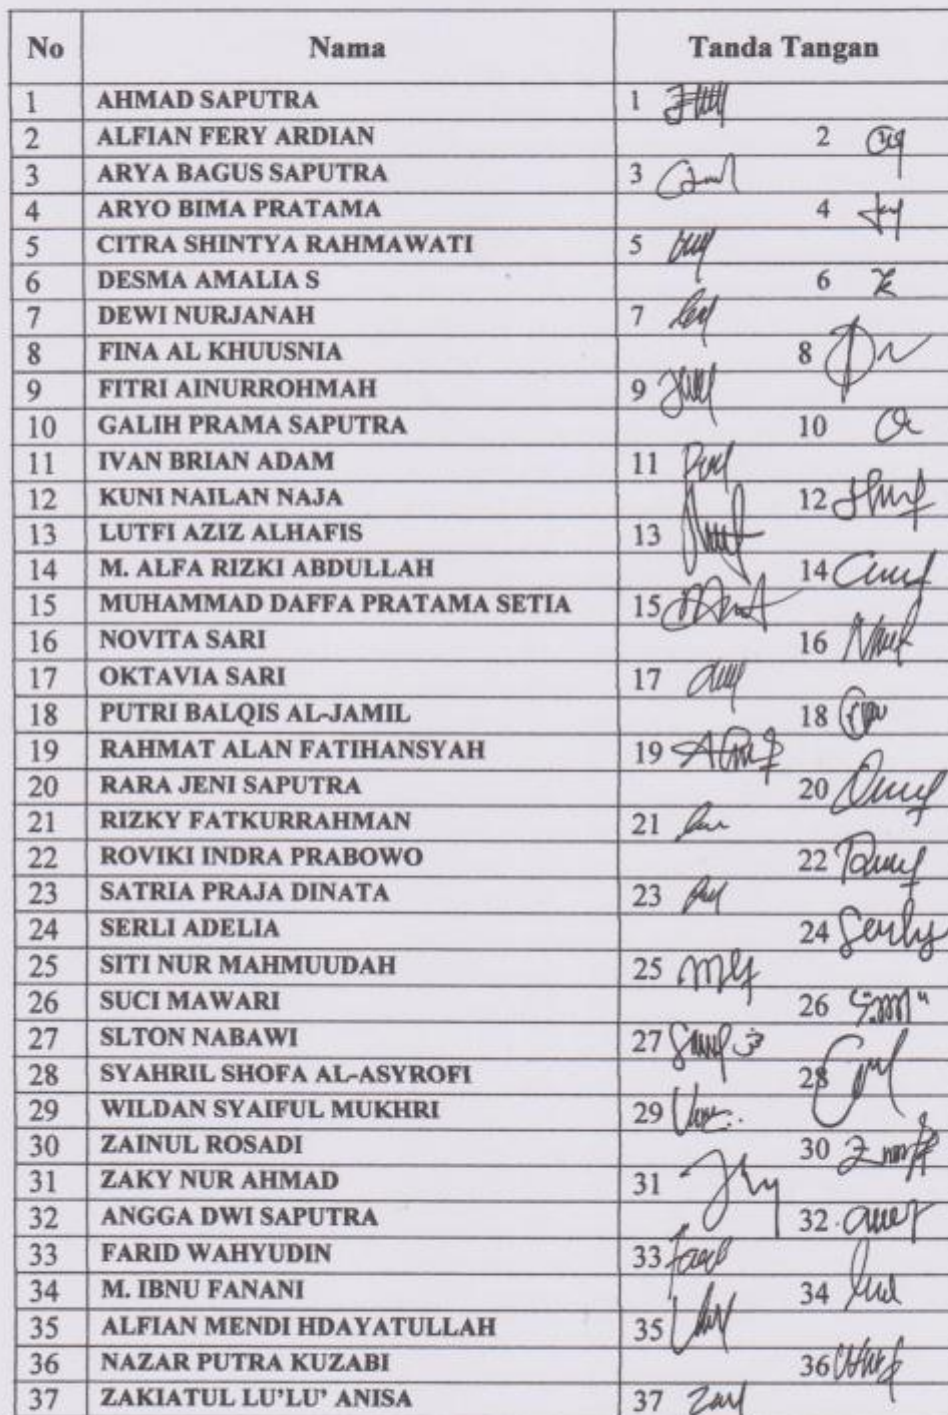 No Nama Tanda Tangan
1 AHMAD SAPUTRA 1
2 ALFIAN FERY ARDIAN 2
3 ARYA BAGUS SAPUTRA 3
4 ARYO BIMA PRATAMA 4
5 CITRA SHINTYA RAHMAWATI 5
6 DESMA AMALIA S 6
7 DEWI NURJANAH 7
8 FINA AL KHUUSNIA 8
9 FITRI AINURROHMAH 9
10 GALIH PRAMA SAPUTRA 10
11 IVAN BRIAN ADAM 11
12 KUNI NAILAN NAJA 12
13 LUTFI AZIZ ALHAFIS 13
14 M. ALFA RIZKI ABDULLAH 14
15 MUHAMMAD DAFFA PRATAMA SETIA 15
16 NOVITA SARI 16
17 OKTAVIA SARI 17
18 PUTRI BALQIS AL-JAMIL 18
19 RAHMAT ALAN FATIHANSYAH 19
20 RARA JENI SAPUTRA 20
21 RIZKY FATKURRAHMAN 21
22 ROVIKI INDRA PRABOWO 22
23 SATRIA PRAJA DINATA 23
24 SERLI ADELIA 24 Serly
25 SITI NUR MAHMUUDAH 25
26 SUCI MAWARI 26
27 SLTON NABAWI 27
28 SYAHRIL SHOFA AL-ASYROFI 28
29 WILDAN SYAIFUL MUKHRI 29
30 ZAINUL ROSADI 30
31 ZAKY NUR AHMAD 31
32 ANGGA DWI SAPUTRA 32.
33 FARID WAHYUDIN 33
34 M. IBNU FANANI 34
35 ALFIAN MENDI HDAYATULLAH 35
36 NAZAR PUTRA KUZABI 36
37 ZAKIATUL LU'LU' ANISA 37